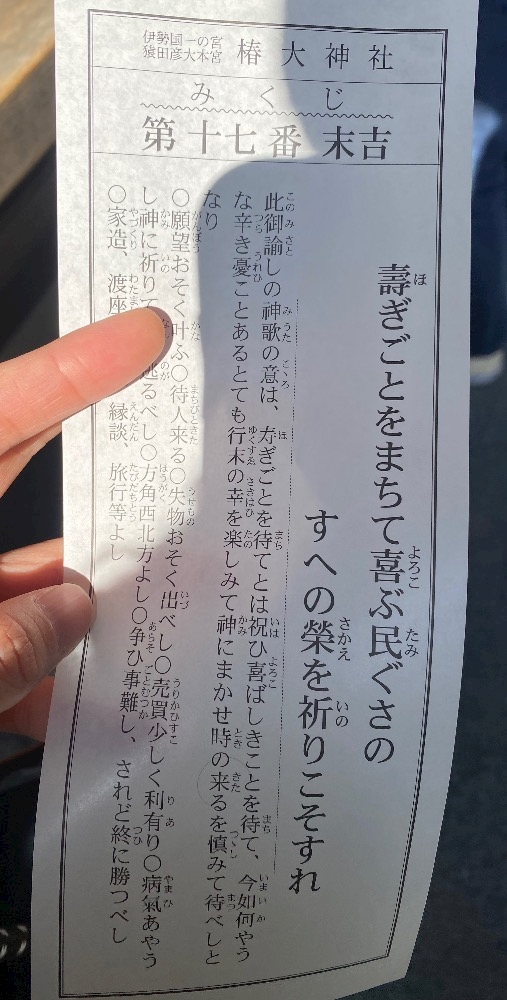 伊勢国一の宮
猿田彦大本宮
椿大神社
みくじ
第十七番 末吉
壽ぎごとをまちて喜ぶ民ぐさの
すへの榮を祈りこそすれ
此御諭しの神歌の意は、寿ぎごとを待てとは祝ひ喜ばしきことを待て、今如何やう
な辛き憂ことあるとても行末の幸を楽しみて神にまかせ時の来るを慎みて待べしと
なり
○願望おそく叶ふ○待人来る○失物おそく出べし○売買少しく利有り○病氣あやう
し神に祈りて るべし○方角西北方よし○争ひ事難し、されど終に勝つべし
○家造、渡座 縁談、旅行等よし